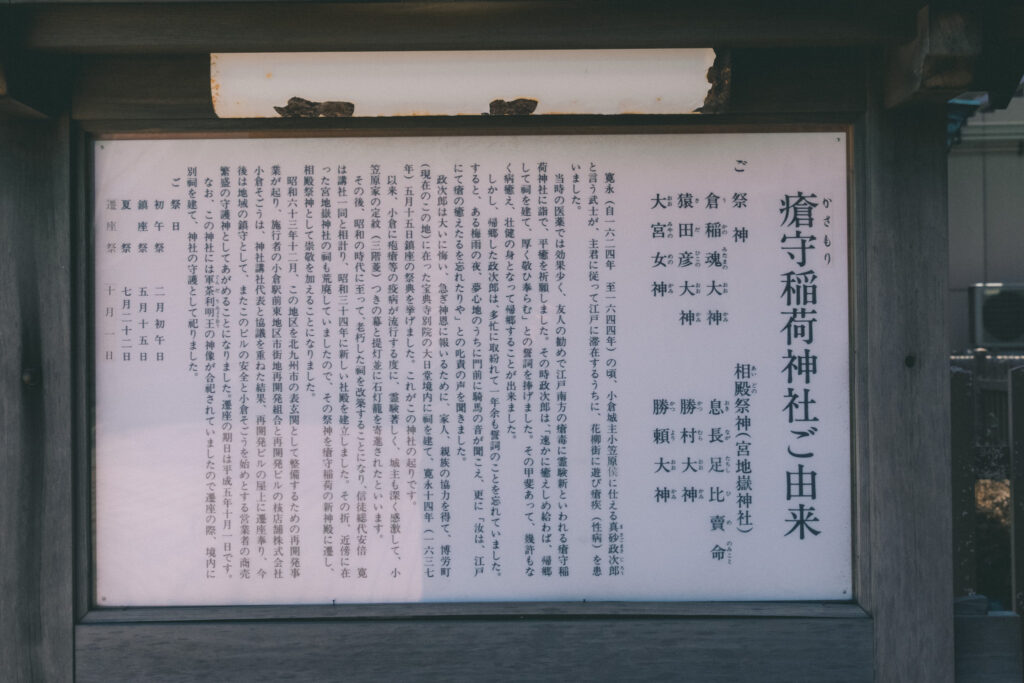 瘡守稲荷神社ご由来
かさもり
ご祭神
倉稲魂大神
猿田彦大神
大宮女神
相殿祭神(宮地嶽神社)
息長足比賣命
勝村大神
勝頼大神
寛永(自一六二四年 至一六四四年)の頃、小倉城主小笠原侯に仕える真砂政次郎
と言う武士が、主君に従って江戸に滞在するうちに、花柳街に遊び瘡疾(性病)を患
いました。
当時の医薬では効果少く、友人の勧めで江戸南方の瘡毒に霊験新といわれる瘡守稲
荷神社に詣で、平癒を祈願しました。その時政次郎は、「速かに癒えしめ給わば、帰郷
して祠を建て、厚く敬ひ奉らむ」との誓詞を捧げました。その甲斐あって、幾許もな
く病癒え、壮健の身となって帰郷することが出来ました。
しかし、帰郷した政次郎は、多忙に取紛れて一年余も誓詞のことを忘れていました。
すると、ある梅雨の夜、夢心地のうちに門前に騎馬の音が聞こえ、更に「汝は、江戸
にて瘡の癒えたるを忘れたりや」との叱責の声を聞きました。
政次郎は大いに悔い、急ぎ神恩に報いるために、家人、親族の協力を得て、博労町
(現在のこの地)に在った宝典寺別院の大日堂境内に祠を建て、寛永十四年(一六三七
年)五月十五日鎮座の祭典を挙げました。これがこの神社の起りです。
以来、小倉に疱瘡等の疫病が流行する度に、霊験著しく、城主も深く感激して、小
笠原家の定紋(三階菱)つきの幕と提灯並に石灯籠を寄進されたといいます。
その後、昭和の時代に至って、老朽した祠を改築することになり、信徒総代安倍 寛
は講社一同と相計り、昭和三十四年に新しい社殿を建立しました。その折、近傍に在
った宮地嶽神社の祠も荒廃していましたので、その祭神を瘡守稲荷の新神殿に遷し、
相殿祭神として崇敬を加えることになりました。
昭和六十三年十二月、この地区を北九州市の表玄関として整備するための再開発事
業が起り、施行者の小倉駅前東地区市街地再開発組合と再開発ビルの核店舗株式会社
小倉そごうは、神社講社代表と協議を重ねた結果、再開発ビルの屋上に遷座奉り、今
後は地域の鎮守として、またこのビルの安全と小倉そごうを始めとする営業者の商売
繁盛の守護神としてあがめることになりました。遷座の期日は平成五年十月一日です。
なお、この神社には軍荼利明王の神像が合祀されていましたので遷座の際、境内に
別祠を建て、神社の守護として祀りました。
ご祭日
初午祭 二月初午日
鎮座祭 五月十五日
夏祭 七月二十二日
遷座祭 十月一日